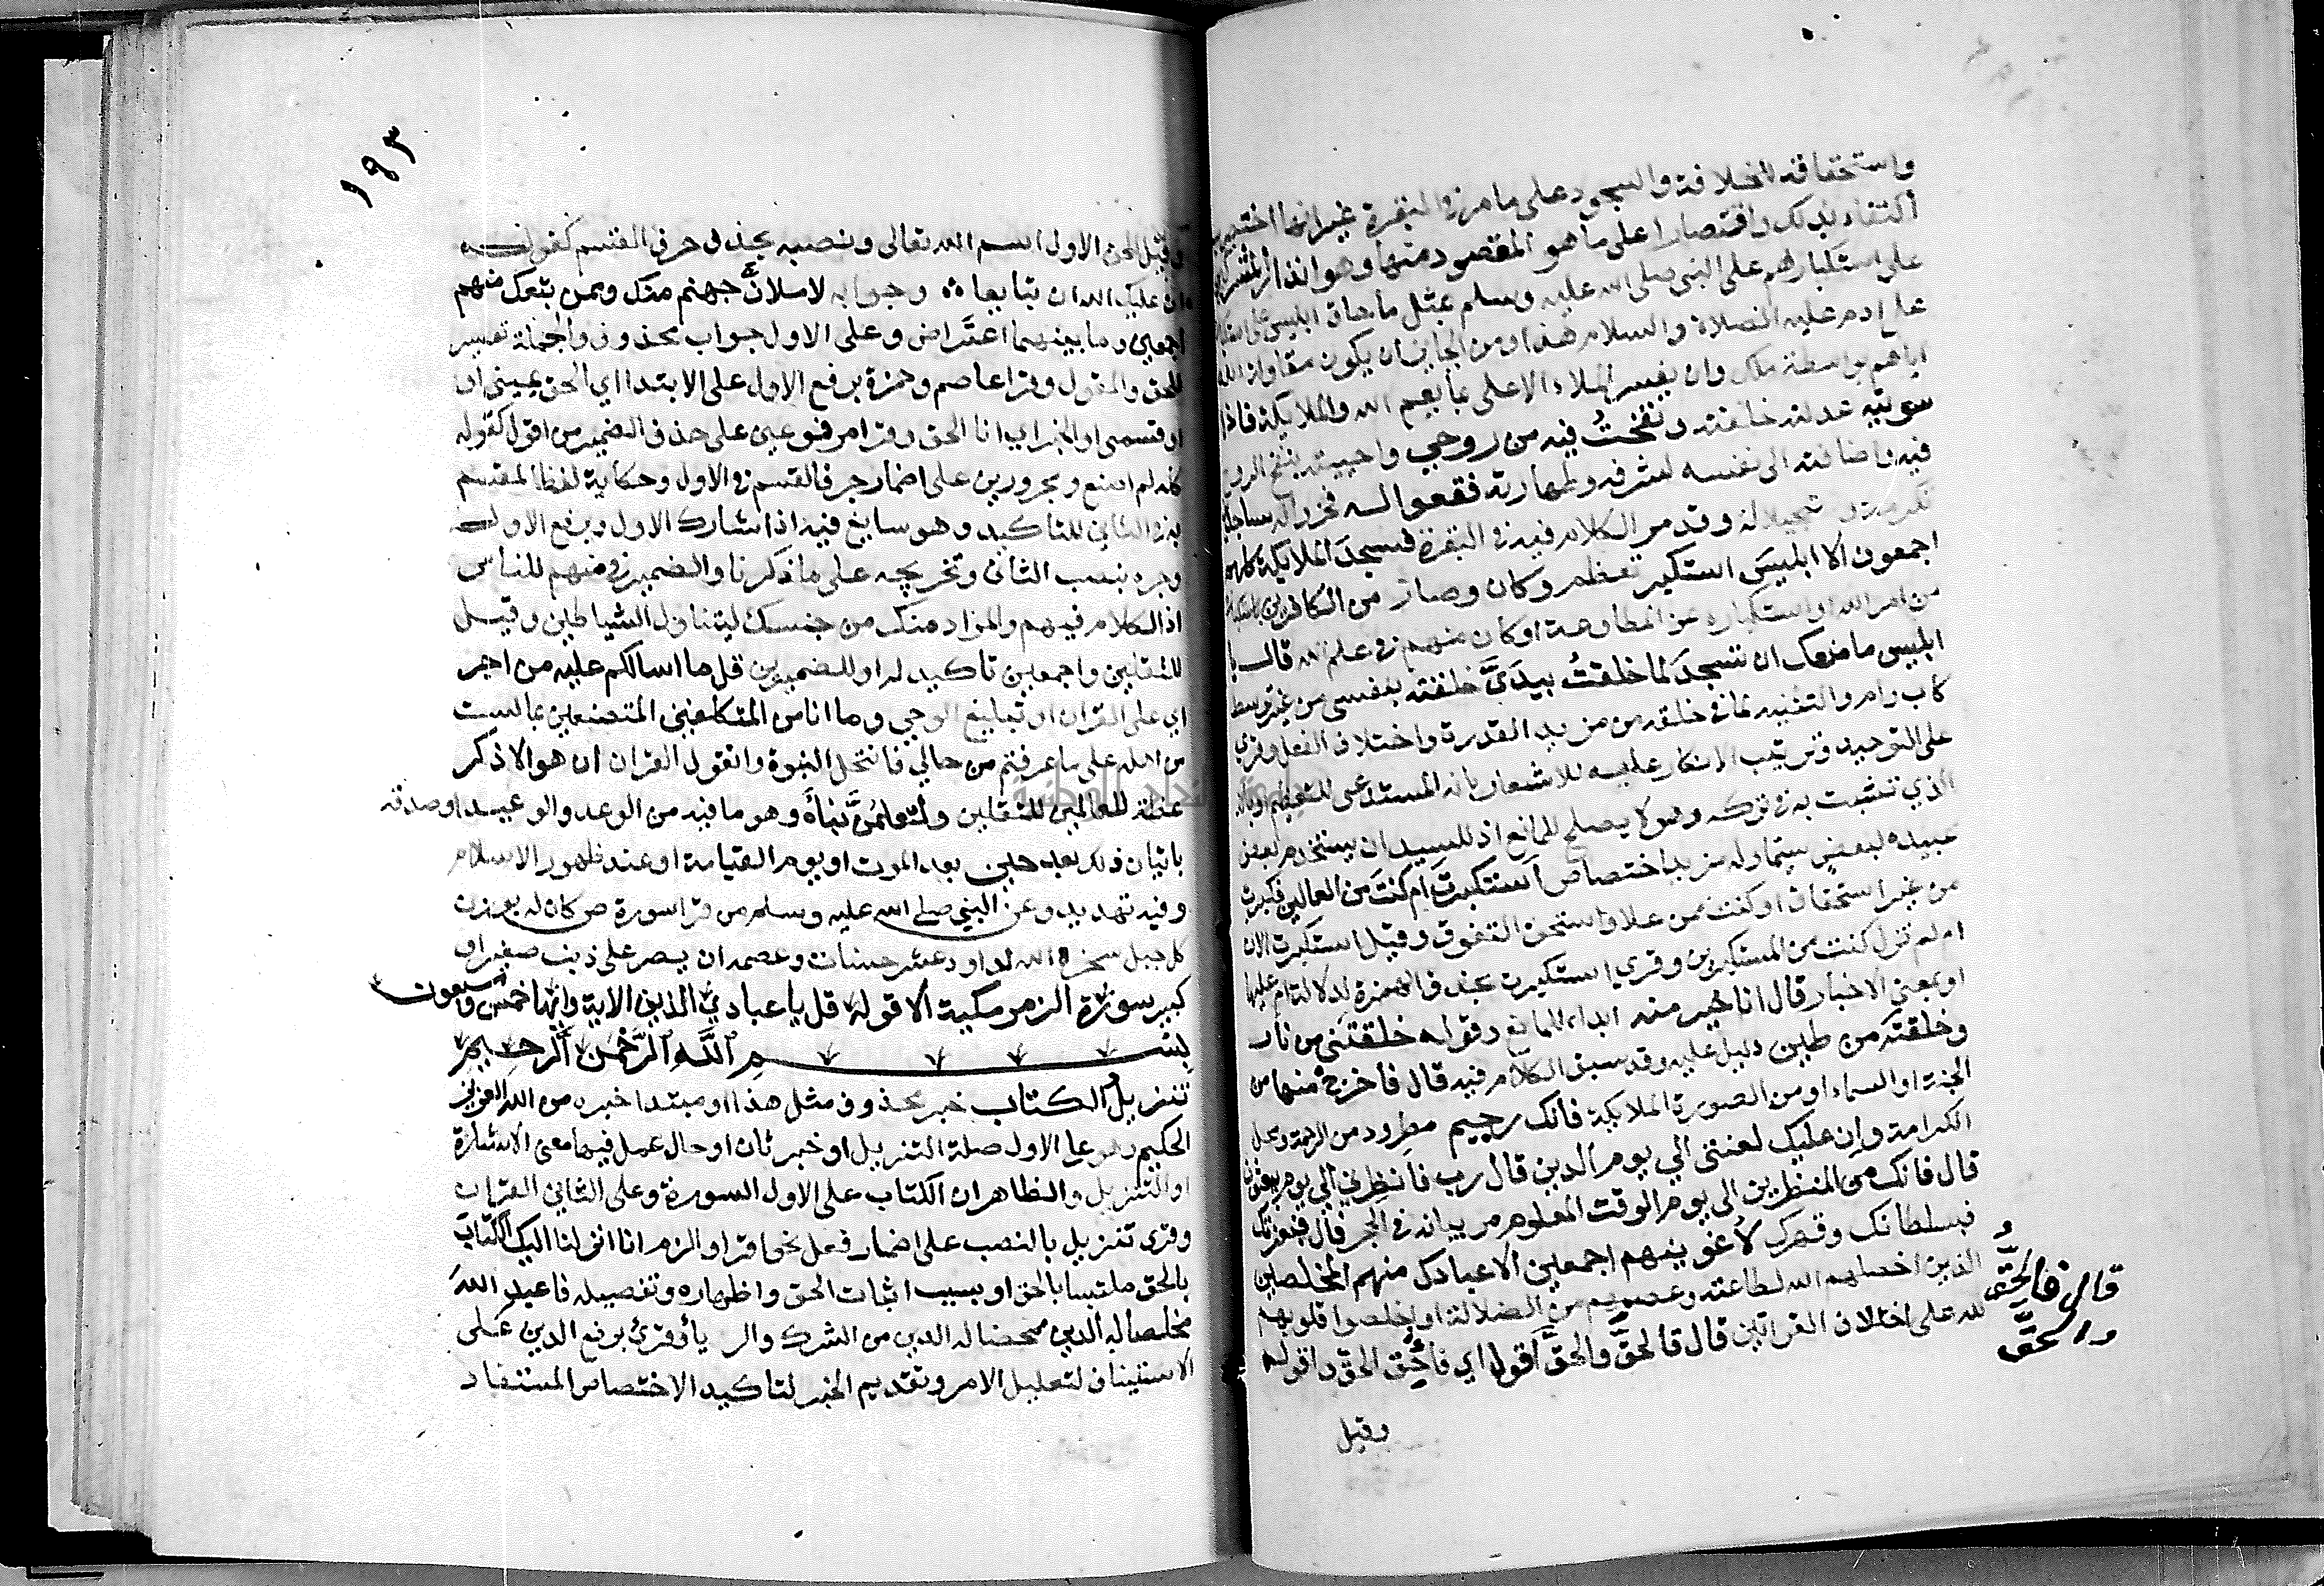 واستحقاقه للخلافة والسجود على ما مر في البقرة غير انها اختصرت
اكتفاء بذلك واقتصارا على ما هو المقصود منها وهو انذار المشركين
على استكبارهم على النبي صلى الله عليه وسلم بمثل ما حاق ابليس على استكباره
على ادم عليه الصلاة والسلام هذا ومن الجايز ان يكون مقاولة الله
اياهم بواسطة ملك وان يفسر الملاء الاعلى بما يعم الله والملايكة فاذا
سويته عدلت خلقته ونفخت فيه من روحي واحييته بنفخ الروح
فيه واضافته الى نفسه لشرفه وطهارته فقعوا له فخروا له ساجدين
تكرمة وتبجيلا له وقد مر الكلام فيه في البقرة فسجد الملايكة كلهم
اجمعون الا ابليس استكبر تعظم وكان وصار من الكافرين باستكباره
من امر الله او استكباره عن المطاوعة او كان منهم في علم الله قال يا
ابليس ما منعك ان تسجد لما خلقت بيديَّ خلقته بنفسي من غير توسط
كاب وام والتثنية لما في خلقه من مزيد القدرة واختلاف الفعل وقري
على التوحيد وترتيب الانكار عليه للاشعار بانه المستدعى للتعظيم او بانه
الذي تشبث به في تركه وهو لا يصلح للمانع اذ للسيد ان يستخدم بعض
عبيده لبعض سيما وله مزيد اختصاص استكبرت ام كنت من العالين تكبرت
من غير استحقاق او كنت ممن علا واستحق التفوق وقيل استكبرت الان
ام لم تزل كنت من المستكبرين وقري استكبرت بحذف الهمزة لدلالة ام عليها
او بمعنى الاخبار قال انا خير منه ابداء للمانع وقوله خلقتني من نار
وخلقته من طين دليل عليه وقد سبق الكلام فيه قال فاخرج منها من
الجنة او السماء او من الصورة الملايكية فانك رجيم مطرود من الرحمة ومحل
الكرامة وان عليك لعنتي الي يوم الدين قال رب فانظرني الي يوم يبعثون
قال فانك من المنظرين الى يوم الوقت المعلوم مر بيانه في الحجر قال فبعزتك
فبسلطانك وقهرك لاغوينهم اجمعين الا عبادك منهم المخلصين
الذين اخلصهم الله لطاعته وعصمهم من الضلالة او اخلصوا قلوبهم
لله على اختلاف القراتين قال فالحقَّ والحقَّ اقول اي فاحق الحق واقوله
قال فالحقُّ
والحقَّ
وقيل
١٩٣
وقيل الحق الاول اسم الله تعالى ونصبه بحذف حرف القسم كقوله
ان عليك الله ان تبايعا ه وجوابه لاملانَّ جهنم منك وممن تبعك منهم
اجمعين وما بينهما اعتراض وعلى الاول جواب محذوف والجملة تفسير
للحق والمقول وقرا عاصم وحمزة برفع الاول على الابتدا اي الحق يميني او
او قسمي او الخبر اي انا الحق وقرا مرفوعين على حذف الضمير من اقول كقوله
كله لم اصنع ومجرورين على اضمار حرف القسم في الاول وحكاية لفظ المقسم
به في الثاني للتاكيد وهو سايغ فيه اذا شارك الاول وبرفع الاول
وجره بنصب الثاني وتخريجه على ما ذكرنا والضمير في منهم للناس
اذ الكلام فيهم والمراد منك من جنسك ليتناول الشياطين وقيل
للثقلين واجمعين تاكيد له او للضميرين قل ما اسالكم عليه من اجر
اي على القران او تبليغ الوحي وما انا من المتكلفين المتصنعين بما لست
من اهله على ما عرفتم من حالي فانتحل النبوة واتقول القران ان هو الا ذكر
عظة للعالمين للثقلين ولتعلمُنَّ نباه وهو ما فيه من الوعد والوعيد او صدقه
باتيان ذلك بعد حين بعد الموت او يوم القيامة او عند ظهور الاسلام
وفيه تهديد وعن النبي صلى الله عليه وسلم من قرا سورة ص كان له بوزن
كل جبل سخره الله لداود عشر حسنات وعصمه ان يصر على ذنب صغير او
كبير سورة الزمر مكية الا قوله قل يا عبادي الذين الاية وايها خمس وسبعون
بسم الله الرحمن الرحيم
تنزيل الكتاب خبر محذوف مثل هذا او مبتدا خبره من الله العزيز
الحكيم وهو على الاول صلة التنزيل او خبر ثان او حال عمل فيها معنى الاشارة
او التنزيل والظاهر ان الكتاب على الاول السورة وعلى الثاني القران
وقرى تنزيل بالنصب على اضمار فعل نحو اقرا او الزم انا انزلنا اليك الكتاب
بالحق ملتبسا بالحق او بسبب اثبات الحق واظهاره وتفصيله فاعبد الله
مخلصا له الدين ممحضا له الدين من الشرك والريا وقرئ برفع الدين على
الاستيناف لتعليل الامر وتقديم الخبر لتاكيد الاختصاص المستفاد